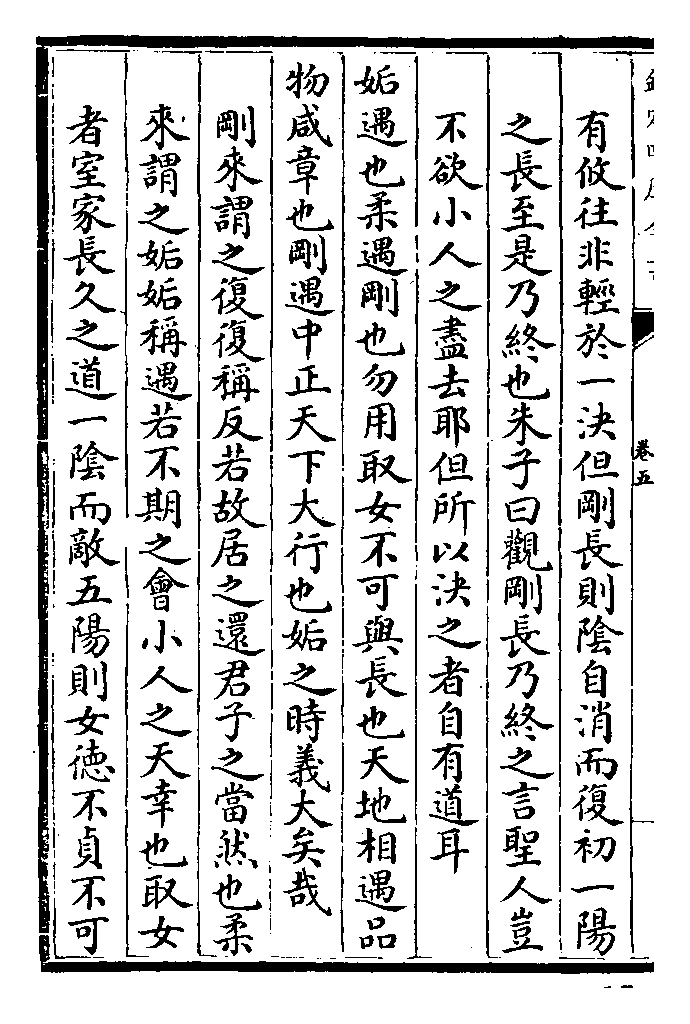 有攸往非輕於一決但剛長則陰自消而復初一陽
之長至是乃終也朱子曰觀剛長乃終之言聖人豈
不欲小人之盡去耶但所以決之者自有道耳
姤遇也柔遇剛也勿用取女不可與長也天地相遇品
物咸章也剛遇中正天下大行也姤之時義大矣哉
剛來謂之復復稱反若故居之還君子之當然也柔
來謂之姤姤稱遇若不期之會小人之天幸也取女
者室家長久之道一陰而敵五陽則女徳不貞不可
卷五